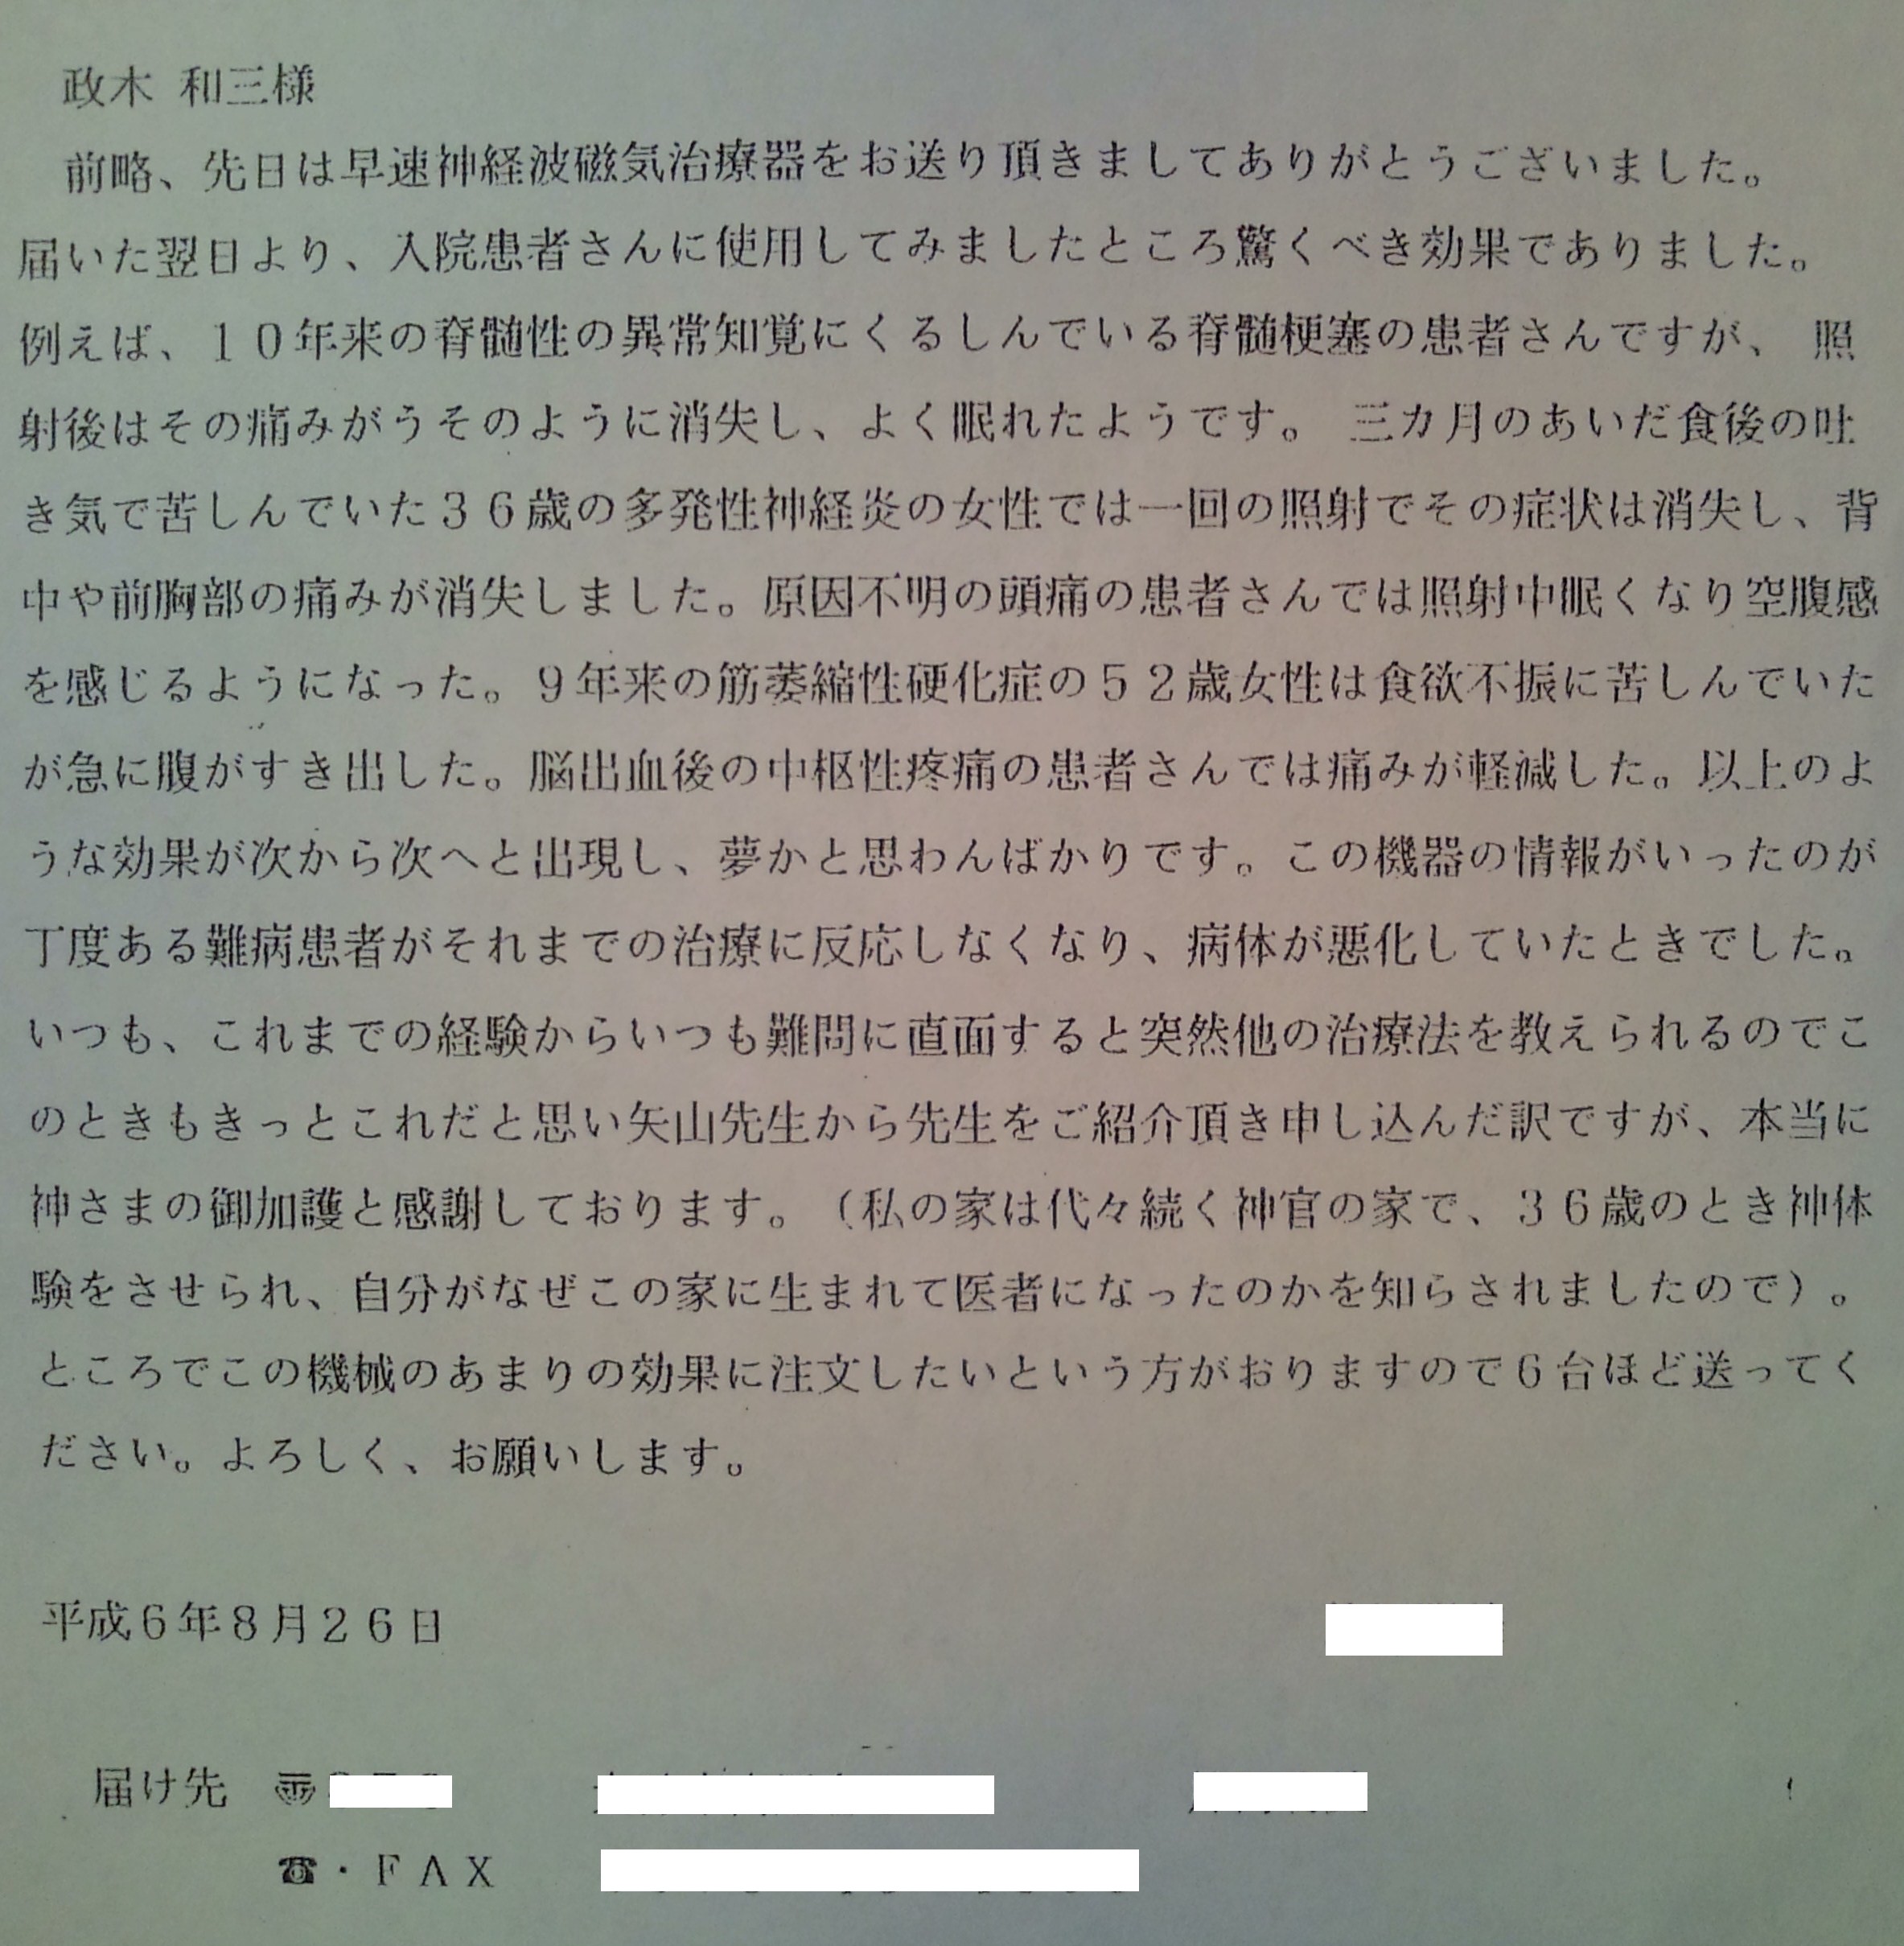 政木 和三様
前略、先日は早速神経波磁気治療器をお送り頂きましてありがとうございました。
届いた翌日より、入院患者さんに使用してみましたところ驚くべき効果でありました。
例えば、１０年来の脊髄性の異常知覚にくるしんでいる脊髄梗塞の患者さんですが、 照
射後はその痛みがうそのように消失し、よく眠れたようです。 三カ月のあいだ食後の吐
き気で苦しんでいた３６歳の多発性神経炎の女性では一回の照射でその症状は消失し、背
中や前胸部の痛みが消失しました。原因不明の頭痛の患者さんでは照射中眠くなり空腹感
を感じるようになった。９年来の筋萎縮性硬化症の５２歳女性は食欲不振に苦しんでいた
が急に腹がすき出した。脳出血後の中枢性疼痛の患者さんでは痛みが軽減した。以上のよ
うな効果が次から次へと出現し、夢かと思わんばかりです。この機器の情報がいったのが
丁度ある難病患者がそれまでの治療に反応しなくなり、病体が悪化していたときでした。
いつも、これまでの経験からいつも難問に直面すると突然他の治療法を教えられるのでこ
のときもきっとこれだと思い矢山先生から先生をご紹介頂き申し込んだ訳ですが、本当に
神さまの御加護と感謝しております。（私の家は代々続く神官の家で、３６歳のとき神体
験をさせられ、自分がなぜこの家に生まれて医者になったのかを知らされましたので）。
ところでこの機械のあまりの効果に注文したいという方がおりますので６台ほど送ってく
ださい。よろしく、お願いします。
平成６年８月２６日
届け先 〠
☎・ＦＡＸ